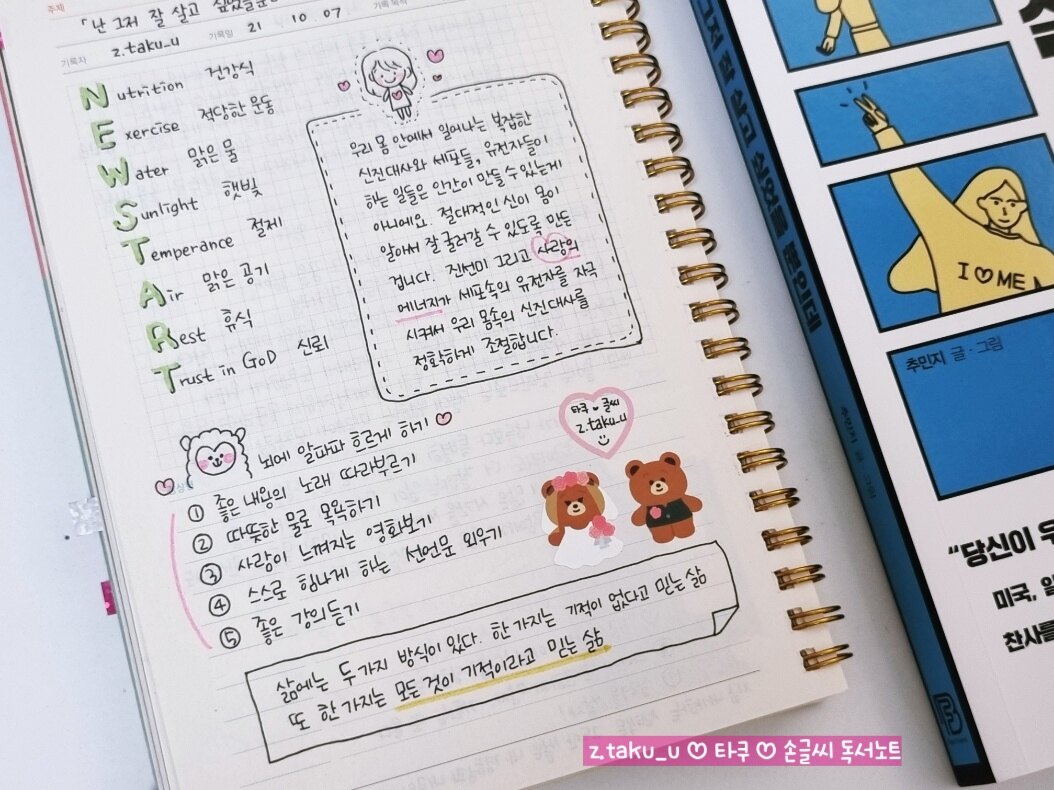 주제
「난 그저 잘 살고 싶었을뿐
기록자 z.taku_u 기록일 21 10 07 기록 목적
Nutrition 건강식
Exercise 적당한 운동
Water 맑은 물
Sunlight 햇빛
Temperance 절제
Air 맑은 공기
Rest 휴식
Trust in GoD 신뢰
우리 몸 안에서 일어나는 복잡한
신진대사와 세포들, 유전자들이
하는 일들은 인간이 만들 수 있는게
아니에요. 절대적인 신이 몸이
알아서 잘 굴러갈 수 있도록 만든
겁니다. 진선미 그리고 사랑의
에너지가 세포속의 유전자를 자극
시켜서 우리 몸속의 신진대사를
정확하게 조절합니다.
뇌에 알파파 흐르게 하기
① 좋은 내용의 노래 따라부르기
② 따뜻한 물로 목욕하기
③ 사랑이 느껴지는 영화보기
④ 스스로 힘나게 하는 선언문 외우기
⑤ 좋은 강의듣기
타쿠 글씨
z.taku_u
삶에는 두가지 방식이 있다. 한 가지는 기적이 없다고 믿는 삶
또 한 가지는 모든 것이 기적이라고 믿는 삶
그저 잘 살고 싶었을 뿐인데
추민지 글·그림
I ♡ ME
추민지 글·그림
“당신이 우
미국, 일
찬사를
z.taku_u ♡ 타쿠 ♡ 손글씨 독서노트